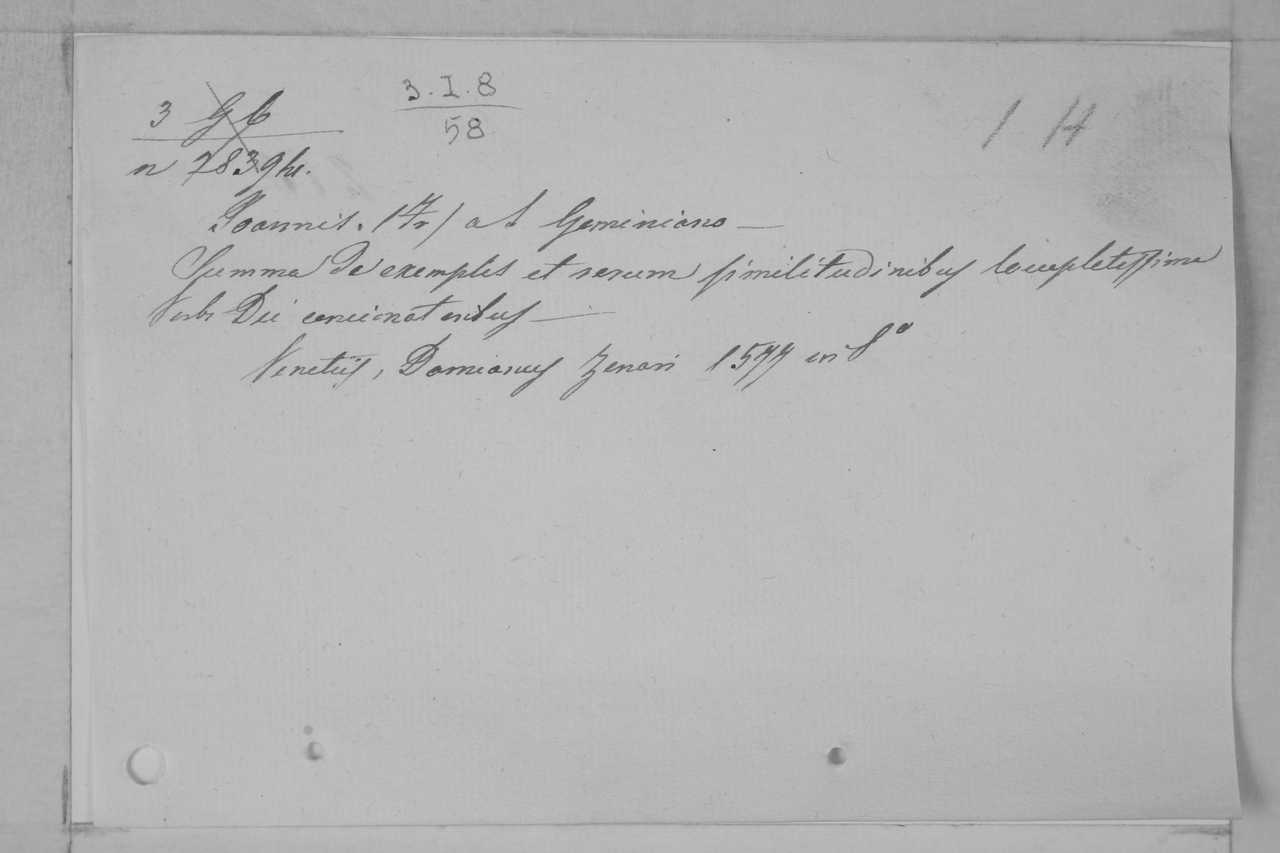 3 G 6
3.I.8
58
1 H
n 7839 hr.
Joannis. (Fr) a S Geminiano —
Summa de exemplis et rerum similitudinibus locupletissima
Verbi Dei concionatoribus —
Venetiis, Damianus Zenari 1577 in 8°